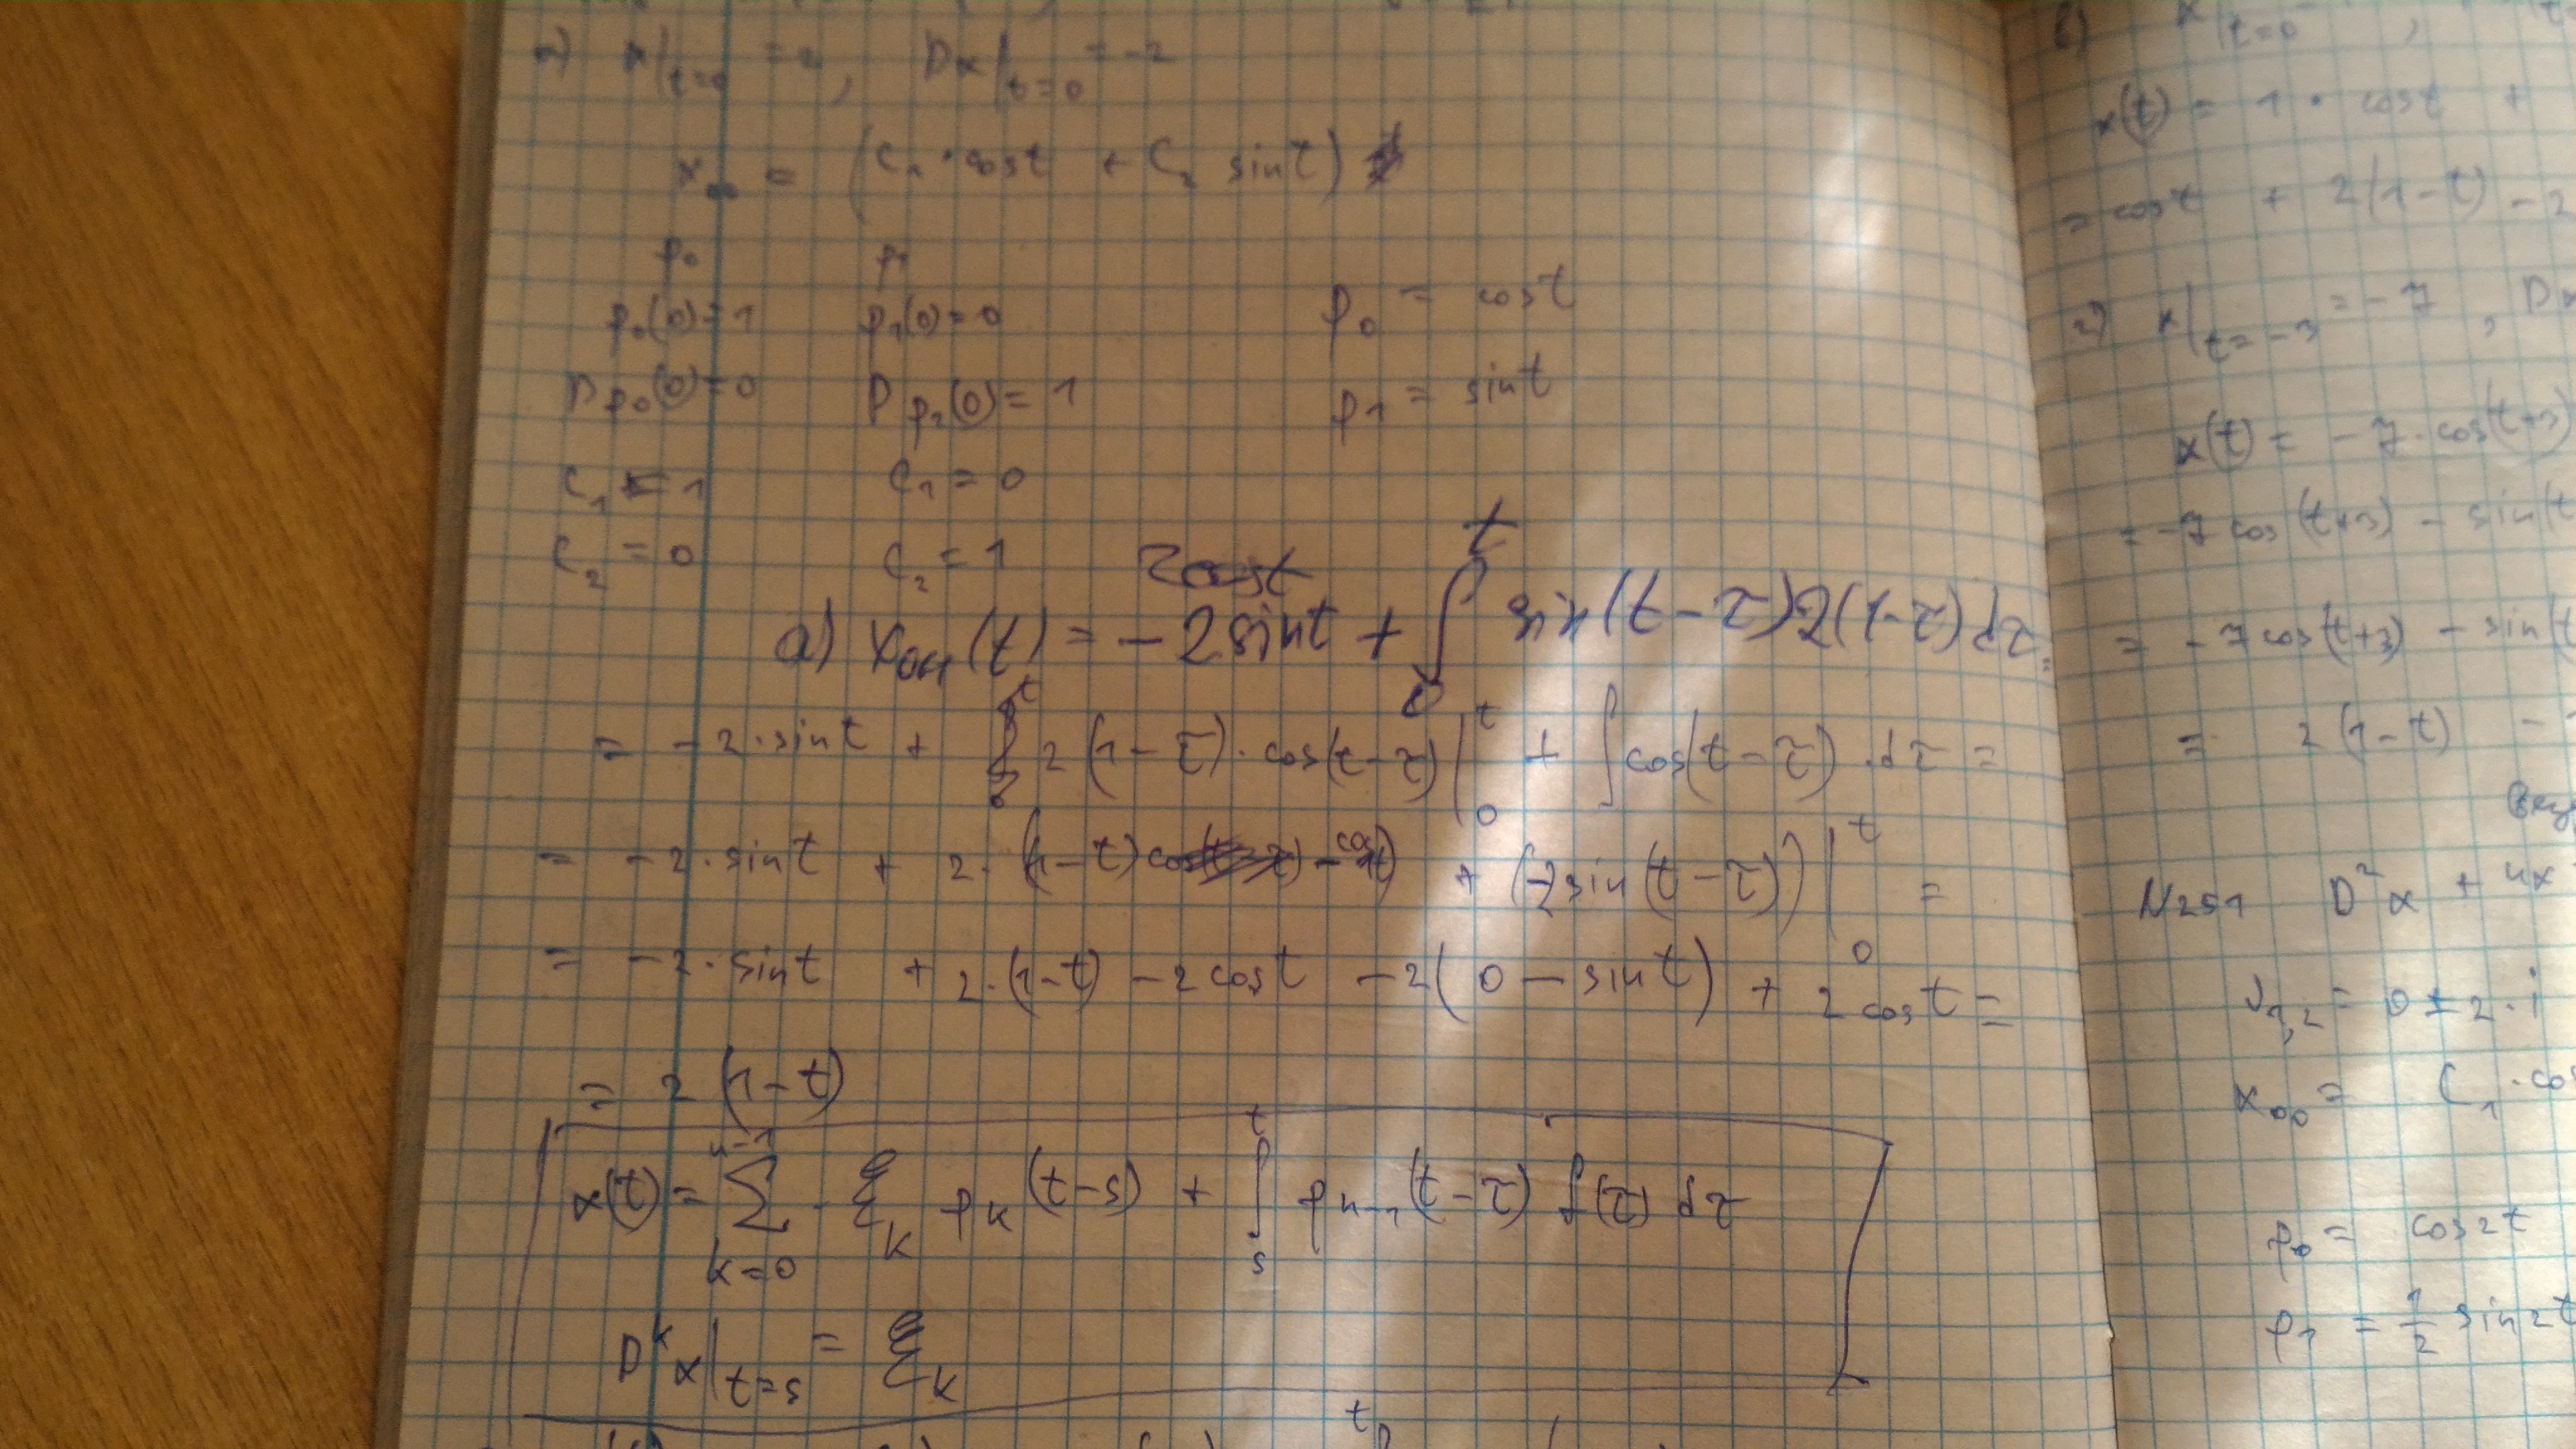 a) x|t=0 = 2, Dx|t=0 = -2
xoo = (C₁·cost + C₂ sint)
p₀ p₁
p₀(0)=1 p₁(0)=0 p₀ = cost
Dp₀(0)=0 Dp₂(0)=1 p₁ = sint
C₁ = 1 C₁ = 0
C₂ = 0 C₂ = 1
2cost
a) xон(t) = -2sint + ∫₀ᵗ sin(t-τ)2(1-τ)dτ =
= -2·sint + 2(1-τ)·cos(t-τ)|₀ᵗ + ∫cos(t-τ)·dτ =
= -2·sint + 2·((1-t) - cost) + (-2sin(t-τ))|₀ᵗ =
= -2·sint + 2·(1-t) - 2cost - 2(0 - sint) + 2cost =
= 2(1-t)
x(t) = ∑ₖ₌₀ⁿ⁻¹ ξₖ pₖ(t-s) + ∫ₛᵗ pₙ₋₁(t-τ) f(τ) dτ
Dᵏx|t=s = ξₖ
в) x|t=0
x(t) = 1·cost +
= cost + 2(1-t) - 2
г) x|t=-3 = -7, D
x(t) = -7·cos(t+3)
= -7cos(t+3) - sin(t
= -7cos(t+3) - sin(t
= 2(1-t) -
N251 D²x + 4x
λ₁,₂ = 0±2·i
xoo = C₁·cos
p₀ = cos2t
p₁ = 1/2 sin2t